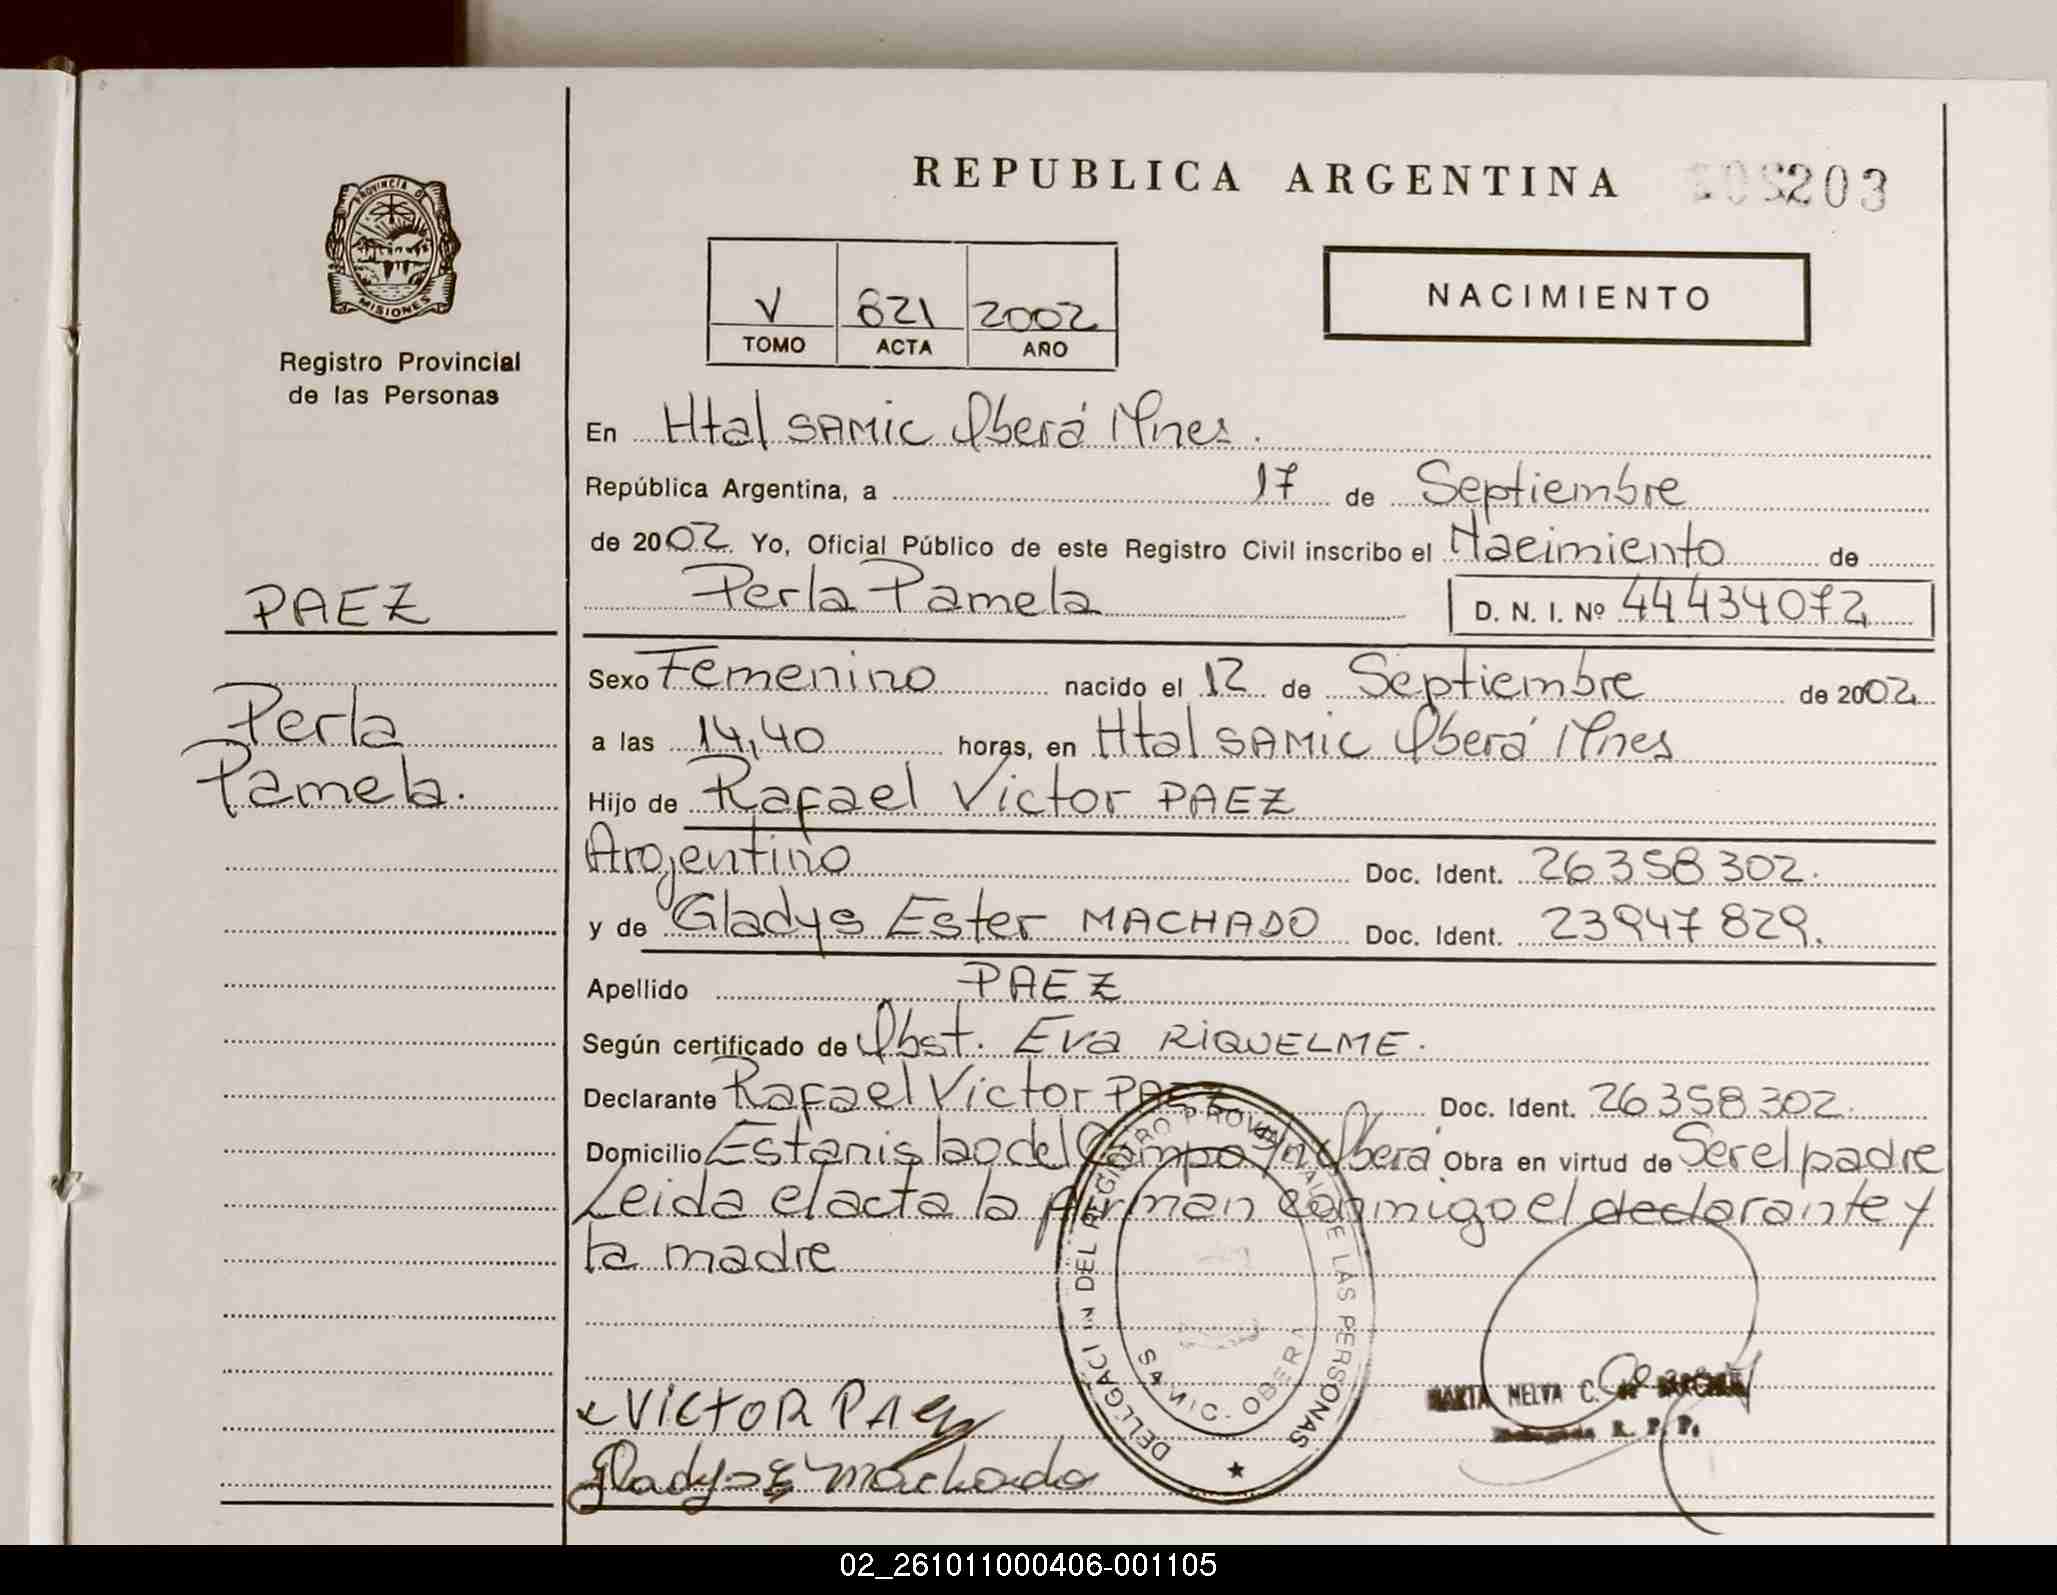 REPUBLICA ARGENTINA
203
PROVINCIA DE
MISIONES
Registro Provincial
de las Personas
V 621 2002
TOMO ACTA AÑO
NACIMIENTO
En Htal SAMIC Oberá Mnes.
República Argentina, a 17 de Septiembre
de 2002. Yo, Oficial Público de este Registro Civil inscribo el Nacimiento de
Perla Pamela D. N. I. Nº 44434072
PAEZ
Perla
Pamela.
Sexo Femenino nacido el 12 de Septiembre de 2002
a las 14,40 horas, en Htal SAMIC Oberá Mnes
Hijo de Rafael Victor PAEZ
Argentino Doc. Ident. 26358302.
y de Gladys Ester MACHADO Doc. Ident. 23947829.
Apellido PAEZ
Según certificado de Obst. Eva RIQUELME.
Declarante Rafael Victor PAEZ Doc. Ident. 26358302.
Domicilio Estanislao del Campo s/n Oberá Obra en virtud de Ser el padre
Leida el acta la firman conmigo el declarante y
la madre
DELEGACI N DEL REGISTRO PROVINCIAL DE LAS PERSONAS
SAMIC. OBERA
VICTOR PAEZ
Gladys E Machado
MARTA NELVA C. de
R. P. P.
02_261011000406-001105